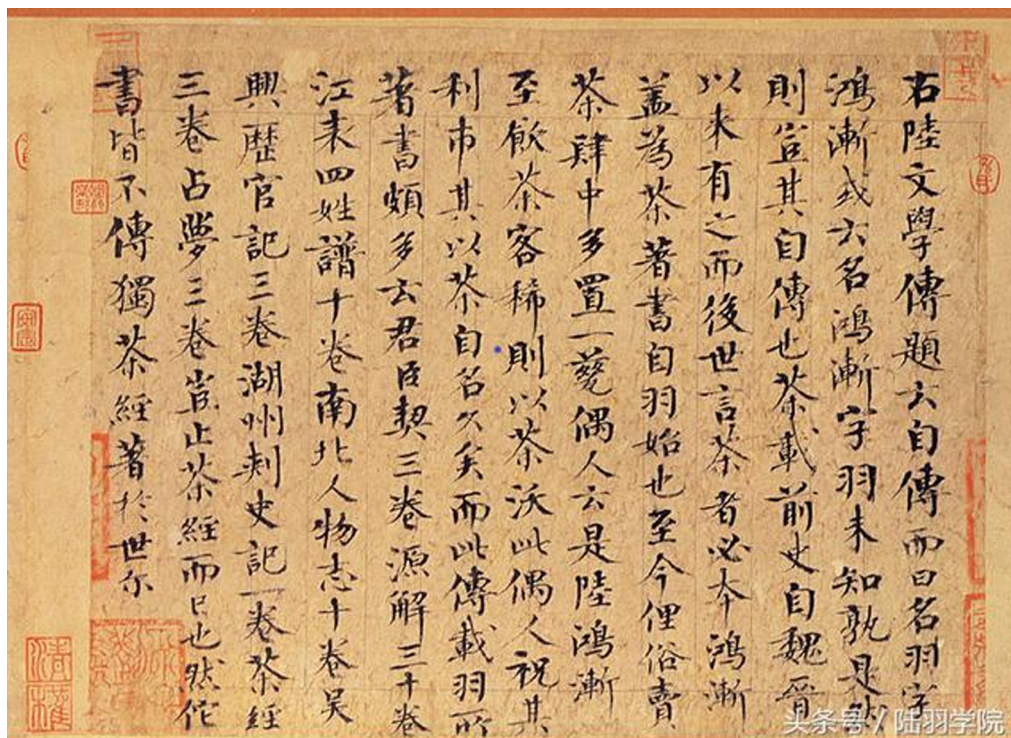 右陸文學傳題云自傳而曰名羽字
鴻漸或云名鴻漸字羽未知孰是然
則豈其自傳也茶載前史自魏晉
以来有之而後世言茶者必本鴻漸
蓋為茶著書自羽始也至今俚俗賣
茶肆中多置一甆偶人云是陸鴻漸
至飲茶客稀則以茶沃此偶人祝其
利市其以茶自名久矣而此傳載羽所
著書頗多云君臣契三卷源解三十卷
江表四姓譜十卷南北人物志十卷吳
興歷官記三卷湖州刺史記一卷茶經
三卷占夢三卷豈止茶經而已也然佗
書皆不傳獨茶經著於世尔
头条号/陆羽学院